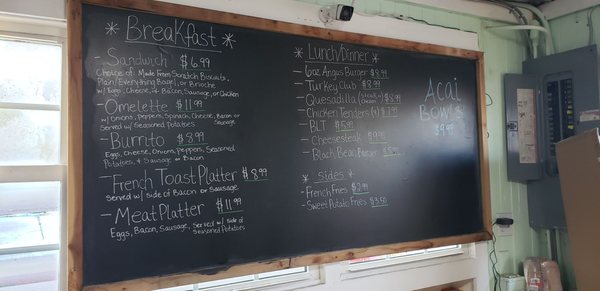 * Breakfast *
- Sandwich $6.99
Choice of: Made From Scratch Biscuits,
Plain/Everything Bagel, or Brioche
w/ Eggs, Cheese, & Bacon, Sausage, or Chicken
- Omelette $11.99
w/ Onions, Peppers, Spinach, Cheese, Bacon or Sausage
Served w/ Seasoned Potatoes
- Burrito $8.99
Eggs, Cheese, Onions, Peppers, Seasoned
Potatoes, & Sausage or Bacon
- French Toast Platter $8.99
Served w/ side of Bacon or Sausage
- Meat Platter $11.99
Eggs, Bacon, Sausage, Served w/ side of
Seasoned Potatoes
* Lunch/Dinner *
- 6oz Angus Burger $8.99
- Turkey Club $8.99
- Quesadilla $8.99
- Chicken Tenders
- BLT
- Cheesesteak
- Black Bean Burger
* Sides *
- French Fries $2.99
- Sweet Potato Fries $3.50
Acai
Bowls
$9.99